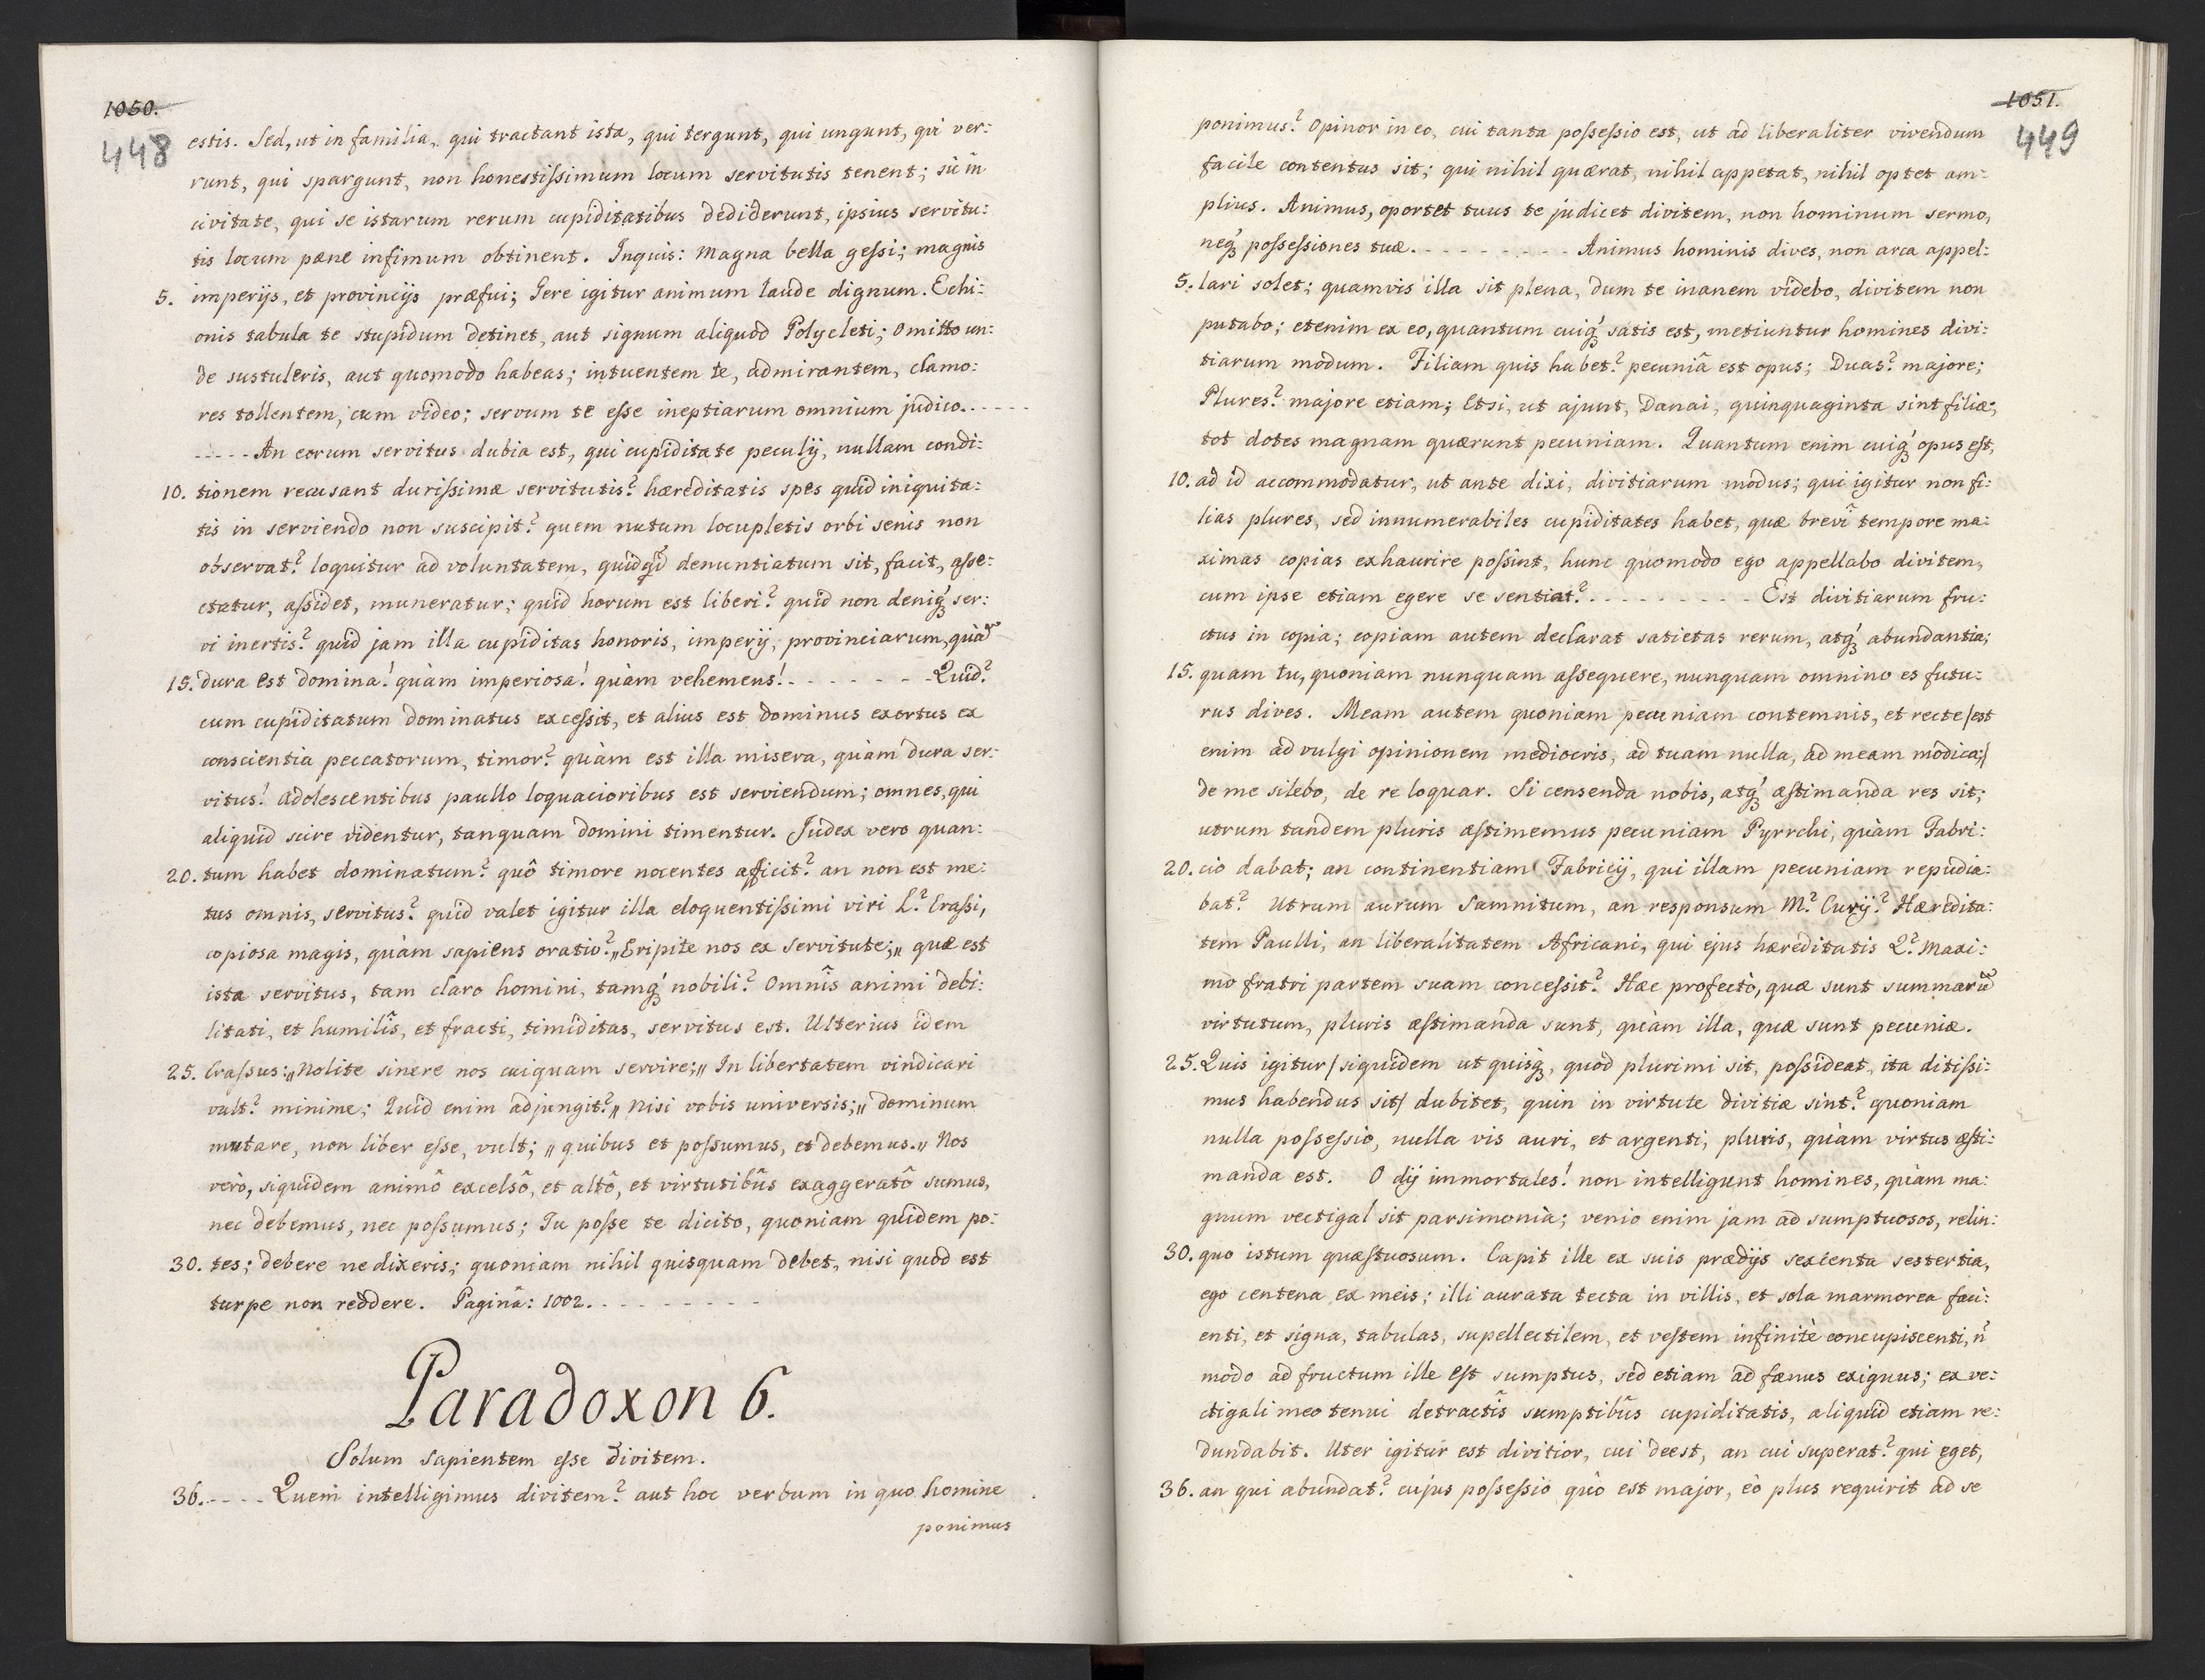 1050.
448
estis. Sed, ut in familia, qui tractant ista, qui tergunt, qui ungunt, qui ver:
runt, qui spargunt, non honestissimum locum servitutis tenent; sic in
civitate, qui se istarum rerum cupiditatibus dediderunt, ipsius servitu:
tis locum pæne infimum obtinent. Inquis: magna bella gessi; magnis
5. imperijs, et provincijs præfui; Gere igitur animum laude dignum. Echi:
onis tabula te stupidum detinet, aut signum aliquod Polycleti; omitto un:
de sustuleris, aut quomodo habeas; intuentem te, admirantem, clamo:
res tollentem, cum video; servum te esse ineptiarum omnium judico. - - - - -
- - - - - An eorum servitus dubia est, qui cupiditate peculij, nullam condi:
10. tionem recusant durissimæ servitutis? hæreditatis spes quid iniquita:
tis in serviendo non suscipit? quem nutum locupletis orbi senis non
observat? loquitur ad voluntatem, quidqd denuntiatum sit, facit, asse:
ctatur, assidet, muneratur; quid horum est liberi? quid non deniq́ ser:
vi inertis? quid jam illa cupiditas honoris, imperij, provinciarum, quã
15. dura est domina! quàm imperiosa! quàm vehemens! - - - - - - - Quid?
cum cupiditatum dominatus excessit, et alius est dominus exortus ex
conscientia peccatorum, timor? quàm est illa misera, quàm dura ser:
vitus! adolescentibus paullo loquacioribus est serviendum; omnes, qui
aliquid scire videntur, tanquam domini timentur. Judex vero quan:
20. tum habet dominatum? quô timore nocentes afficit? an non est me:
tus omnis, servitus? quid valet igitur illa eloquentissimi viri L? Crassi,
copiosa magis, quàm sapiens oratio? „Eripite nos ex servitute;„ quæ est
ista servitus, tam claro homini, tamq́ nobili? Omnîs animi debi:
litati, et humilîs, et fracti, timiditas, servitus est. Ulterius idem
25. Crassus: „Nolite sinere nos cuiquam servire;„ In libertatem vindicari
vult? minime; Quid enim adjungit? „ nisi vobis universis;„ dominum
mutare, non liber esse, vult; „ quibus et possumus, et debemus.„ Nos
verò, siquidem animô excelsô, et altô, et virtutibûs exaggeratô sumus,
nec debemus, nec possumus; Tu posse te dicito, quoniam quidem po:
30. tes; debere ne dixeris; quoniam nihil quisquam debet, nisi quod est
turpe non reddere. Paginâ: 1002. - - - - - - - - -
Paradoxon 6.
Solum sapientem esse divitem.
36. - - - - Quem intelligimus divitem? aut hoc verbum in quo homine
ponimus
1051.
449
ponimus? Opinor in eo, cui tanta possessio est, ut ad liberaliter vivendum
facile contentus sit; qui nihil quærat, nihil appetat, nihil optet am:
plius. Animus, oportet tuus te judicet divitem, non hominum sermo,
neq́ possessiones tuæ. - - - - - - - - - Animus hominis dives, non arca appel:
5. lari solet; quamvis illa sit plena, dum te inanem videbo, divitem non
putabo; etenim ex eo, quantum cuiq́ satis est, metiuntur homines divi:
tiarum modum. Filiam quis habet? pecuniâ est opus; Duas? majore;
Plures? majore etiam; Etsi, ut ajunt, Danai, quinquaginta sint filiæ;
tot dotes magnam quærunt pecuniam. Quantum enim cuiq́ opus est,
10. ad id accommodatur, ut ante dixi, divitiarum modus; qui igitur non fi:
lias plures, sed innumerabiles cupiditates habet, quæ brevî tempore ma:
ximas copias exhaurire possint, hunc quomodo ego appellabo divitem,
cum ipse etiam egere se sentiat? - - - - - - - - - Est divitiarum fru:
ctus in copia; copiam autem declarat satietas rerum, atq́ abundantia;
15. quam tu, quoniam nunquam assequere, nunquam omnino es futu:
rus dives. Meam autem quoniam pecuniam contemnis, et recte /est
enim ad vulgi opinionem mediocris, ad tuam nulla, ad meam modica;/
de me silebo, de re loquar. Si censenda nobis, atq́ æstimanda res sit;
utrum tandem pluris æstimemus pecuniam Pyrrchi, quàm Fabri:
20. cio dabat; an continentiam Fabricij, qui illam pecuniam repudia:
bat? Utrum aurum Samnitum, an responsum M? Curij? Hæredita:
tem Paulli, an liberalitatem Africani, qui ejus hæreditatis Q? Maxi:
mo fratri partem suam concessit? Hæc profectò, quæ sunt summarũ
virtutum, pluris æstimanda sunt, quàm illa, quæ sunt pecuniæ.
25. Quis igitur /siquidem ut quisq, quod plurimi sit, possideat, ita ditissi:
mus habendus sit/ dubitet, quin in virtute divitiæ sint? quoniam
nulla possessio, nulla vis auri, et argenti, pluris, quàm virtus æsti:
manda est. O dij immortales! non intelligunt homines, quàm ma:
gnum vectigal sit parsimonia; venio enim jam ad sumptuosos, relin:
30. quo istum quæstuosum. Capit ille ex suis prædijs sexcenta sestertia,
ego centena ex meis; illi aurata tecta in villis, et sola marmorea faci:
enti, et signa, tabulas, supellectilem, et vestem infinitè concupiscenti, ñ
modo ad fructum ille est sumptus, sed etiam ad fœnus exiguus; ex ve:
ctigali meo tenui detractîs sumptibûs cupiditatis, aliquid etiam re:
dundabit. Uter igitur est divitior, cui deest, an cui superat? qui eget,
36. an qui abundat? cujus possessio quò est major, eò plus requirit ad se